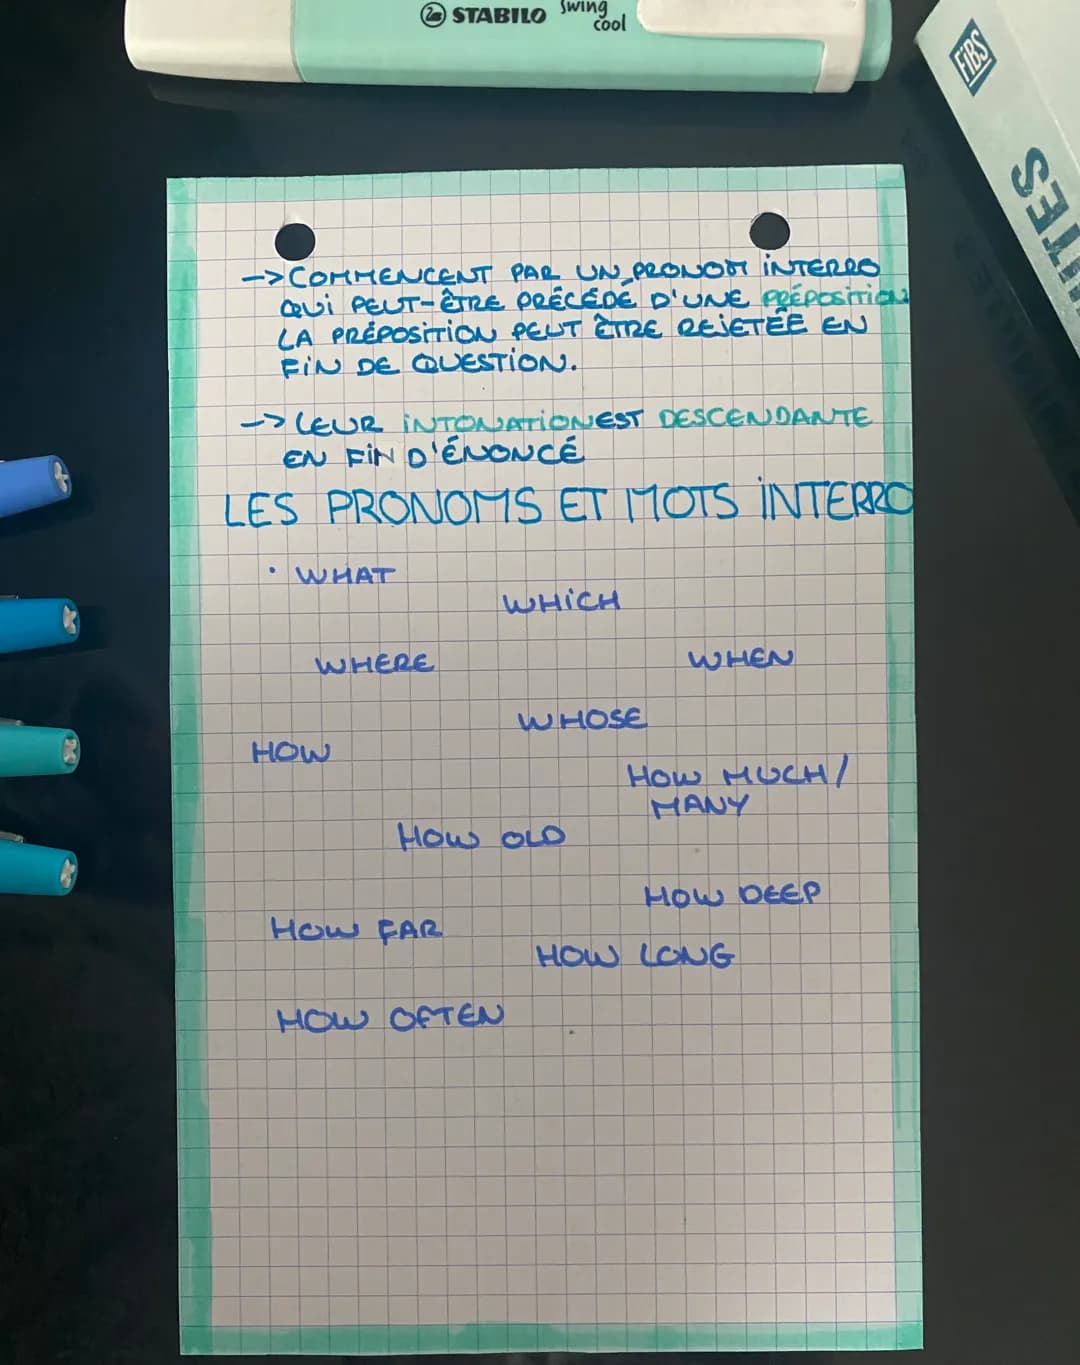 STABILO Swing cool
FiBS
ITES
-> COMMENCENT PAR UN PRONOM INTERRO
QUI PEUT-ÊTRE PRÉCÉDÉ D'UNE PRÉPOSITION
LA PRÉPOSITION PEUT ÊTRE REJETÉE EN
FIN DE QUESTION.
-> LEUR INTONATION EST DESCENDANTE
EN FIN D'ÉNONCÉ
LES PRONOMS ET MOTS INTERRO
· WHAT
WHICH
WHERE WHEN
WHOSE
HOW
HOW MUCH/
MANY
HOW OLD
HOW DEEP
HOW FAR
HOW LONG
HOW OFTEN